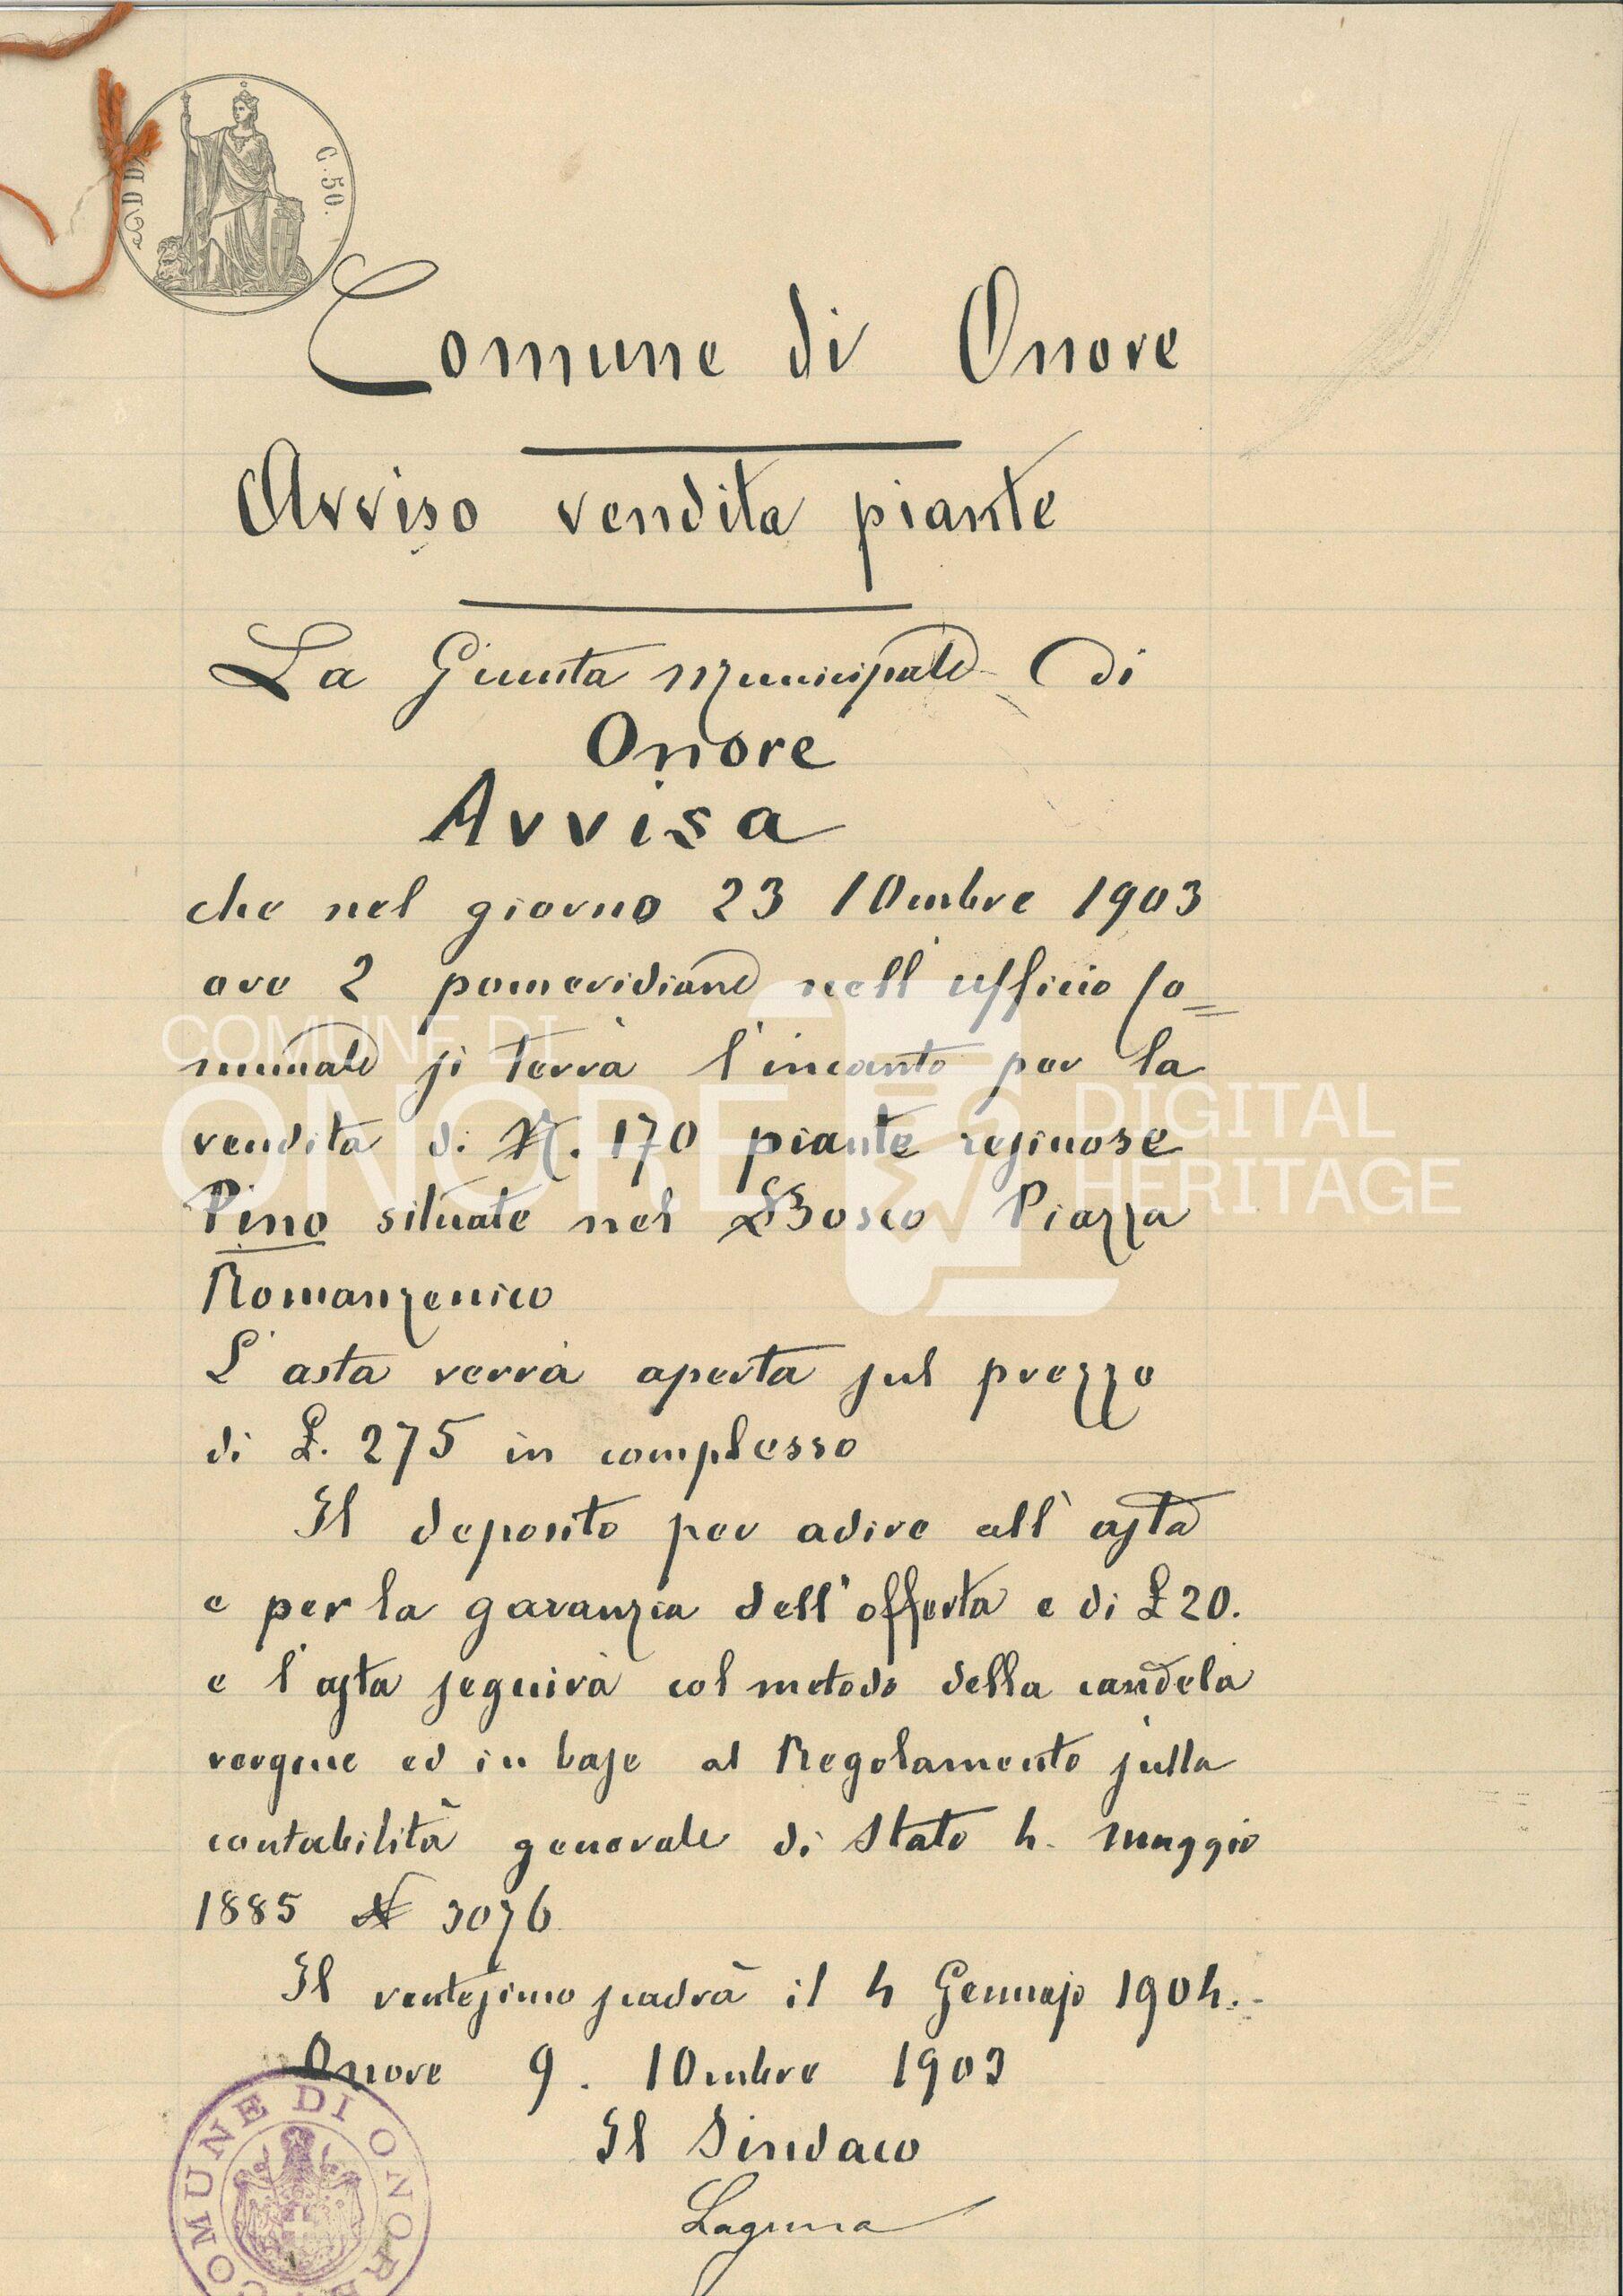 C. 50.
Comune di Onore
Avviso vendita piante
La Giunta Municipale di
Onore
Avvisa
che nel giorno 23 10mbre 1903
ore 2 pomeridiane nell'ufficio Co=
munale si terrà l'incanto per la
vendita di N. 170 piante resinose
Pino situate nel Bosco Piazza
Romanzenico
L'asta verrà aperta sul prezzo
di £. 275 in complesso
Il deposito per adire all'asta
e per la garanzia dell'offerta e di £ 20.
e l'asta seguirà col metodo della candela
vergine ed in base al Regolamento sulla
contabilità generale di Stato 4. Maggio
1885 N 3076
Il ventesimo scadrà il 4 Gennajo 1904.-
Onore 9. 10mbre 1903
Il Sindaco
COMUNE DI ONORE
COMUNE DI
ONORE
DIGITAL
HERITAGE